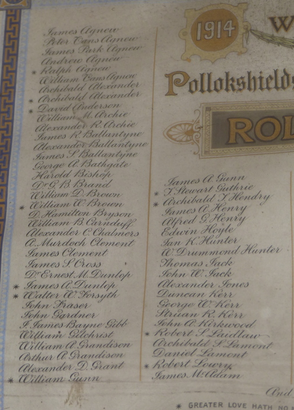 1914
W
Pollokshields
ROL
James Agnew
Peter Agnew
James Park Agnew
Andrew Agnew
Ralph Agnew
William Agnew
Archibald Alexander
Archibald Alexander
David Anderson
William M. Archie
Alexander P. Archie
James R. Ballantyne
Alexander Ballantyne
James S. Ballantyne
George A. Bathgate
Harold Bishop
Dr G. B. Brand
William D. Brown
* William W. Brown
D. Hamilton Bryson
William B. Carnduff
Alexander C. Chalmers
A. Murdoch Clement
James Clement
James S. Cross
Dr Ernest M. Dunlop
* James A. Dunlop
* Walter W. Forsyth
John Fraser
John Gardner
F. James Bayne Gibb
William Gilchrist
William A. Grandison
Arthur A. Grandison
Alexander D. Grant
* William Gunn
James A. Gunn
T. Stewart Guthrie
* Archibald T. Hendry
James A. Henry
Alfred G. Henry
Edwin Hoyle
Ian K. Hunter
W. Drummond Hunter
Thomas Jack
John W. Jack
Alexander Jones
Duncan Kerr
George A. Kerr
Struan R. Kerr
John A. Kirkwood
* Robert S. Laidlaw
Archibald S. Lamont
Daniel Lamont
* Robert Lowry
James McAdam
And
* GREATER LOVE HATH NO